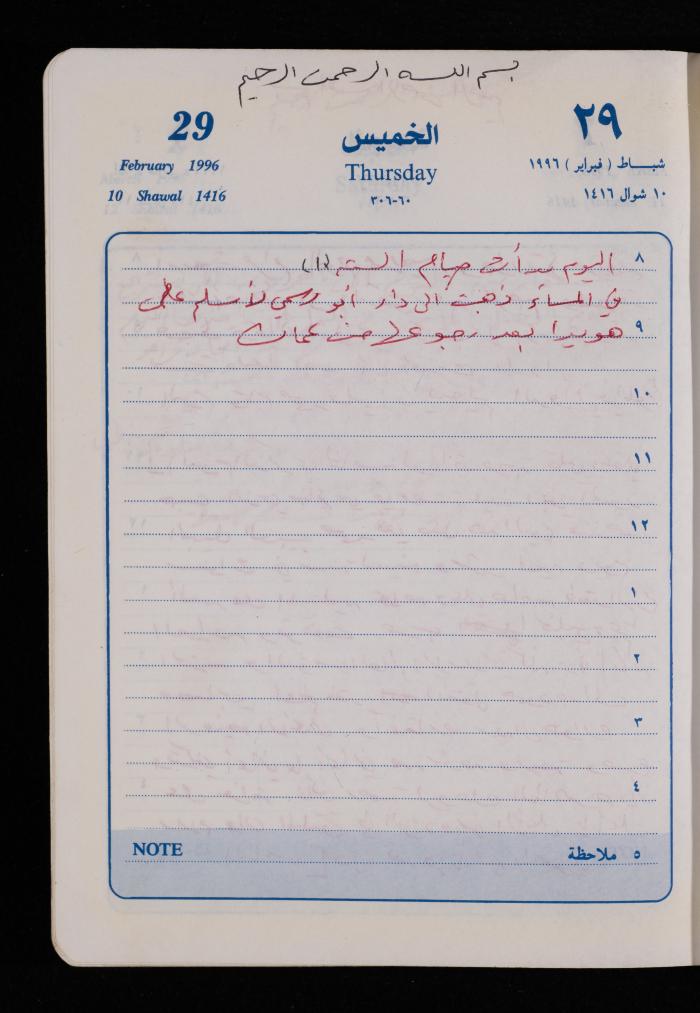 بسم الله الرحمن الرحيم
29 الخميس ٢٩
February 1996 Thursday شباط ( فبراير ) ١٩٩٦
10 Shawal 1416 ٣٠٦-٦٠ ١٠ شوال ١٤١٦
٨ اليوم بدأت صيام السته (١)
في المساء ذهبت الى دار أبو رسمي لأسلم على
٩ هويدا بعد رجوعها من عمان
١٠
١١
١٢
١
٢
٣
٤
NOTE ٥ ملاحظة